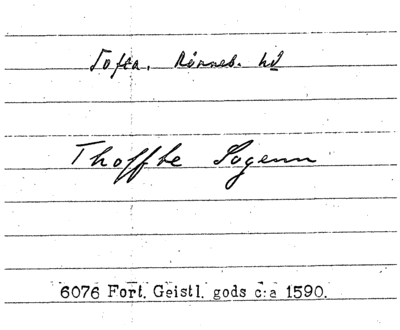 Tofta. Rönneb. hd
Thoffte Sogenn
6076 Fort. Geistl. gods c:a 1590.